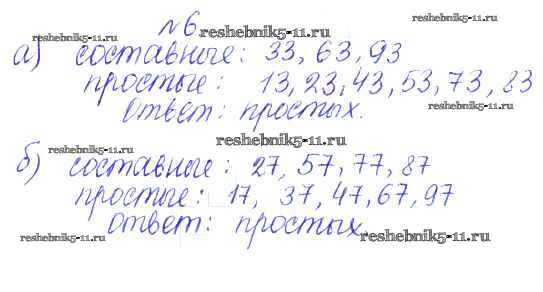 №6
reshebnik5-11.ru
reshebnik5-11.ru
а) составные: 33, 63, 93
простые: 13, 23, 43, 53, 73, 83
reshebnik5-11.ru
Ответ: простых.
reshebnik5-11.ru
reshebnik5-11.ru
б) составные: 27, 57, 77, 87
простые: 17, 37, 47, 67, 97
Ответ: простых.
reshebnik5-11.ru
reshebnik5-11.ru